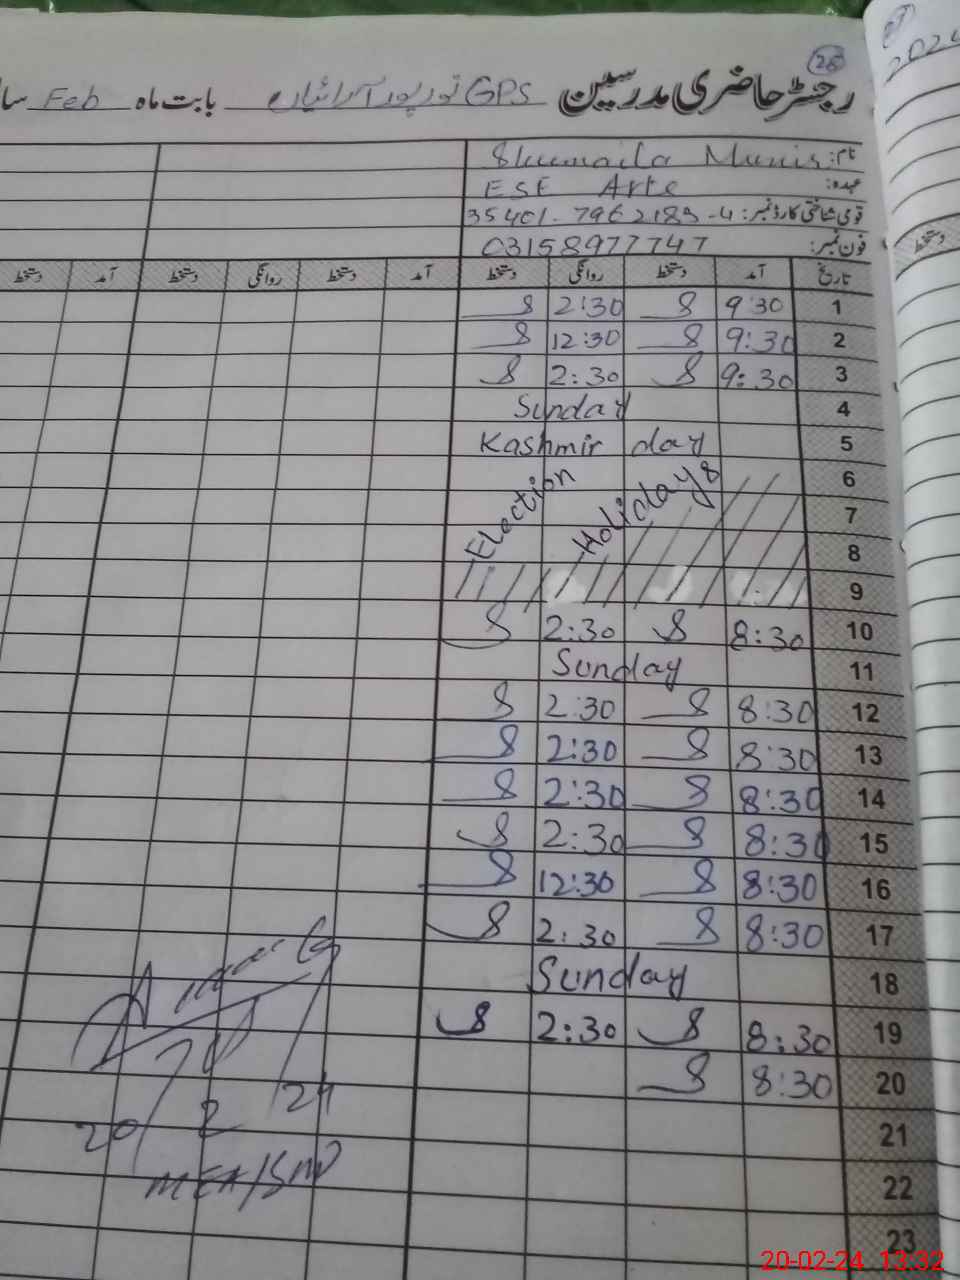 26
رجسٹر حاضری مدرسین GPS نور پور آرائیاں بابت ماہ Feb سا
2024
نام: Shumaila Munir
عہدہ: ESE Arte
قومی شناختی کارڈ نمبر: 35401-7962183-4
فون نمبر: 03158977747
تاریخ آمد دستخط روانگی دستخط آمد دستخط روانگی دستخط آمد دستخط
دستخط
1 9:30 8 2:30 8
2 9:30 8 12:30 8
3 9:30 8 2:30 8
4 Sunday
5 Kashmir day
6
7
8
9
Election Holidays
10 8:30 8 2:30 8
11 Sunday
12 8:30 8 2:30 8
13 8:30 8 2:30 8
14 8:30 8 2:30 8
15 8:30 8 2:30 8
16 8:30 8 12:30 8
17 8:30 8 2:30 8
18 Sunday
19 8:30 8 2:30 8
20 8:30 8
21
22
23
20 2 24
MEA/SMD
20-02-24 13:32